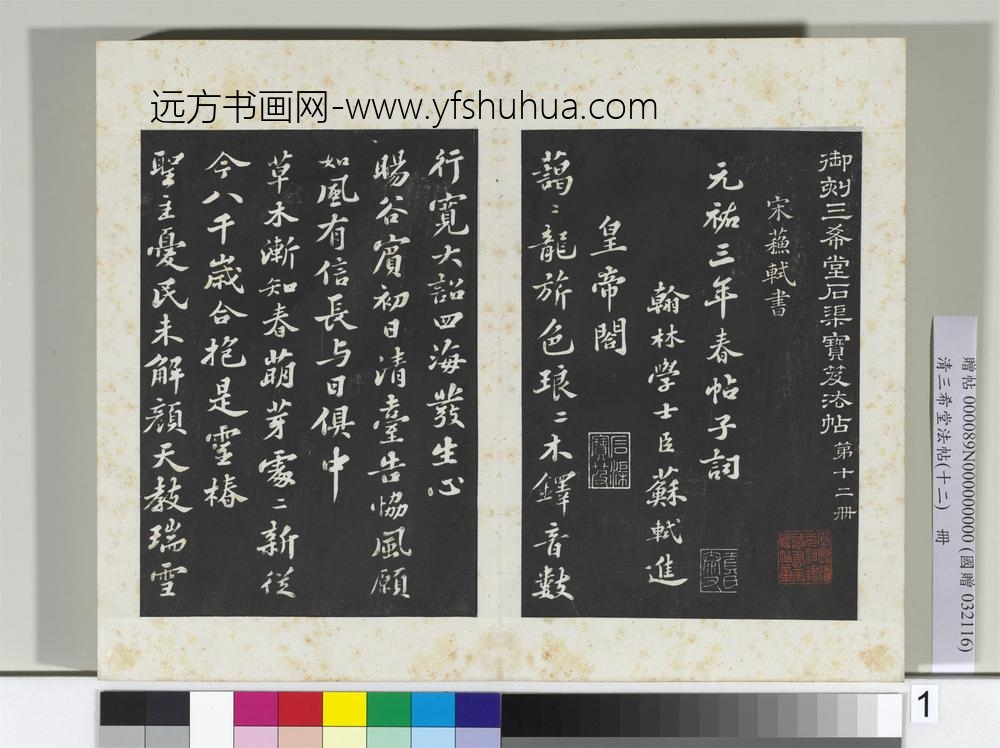 远方书画网-www.yfshuhua.com
御刻三希堂石渠寶笈法帖 第十二冊
宋蘇軾書
元祐三年春帖子詞
翰林學士臣蘇軾進
皇帝閣
藹〻龍旂色琅〻木鐸音數
行寬大詔四海發生心
暘谷賓初日清臺告協風願
如風有信長与日俱中
草木漸知春萌芽處〻新從
今八千歲合抱是靈椿
聖主憂民未解顏天教瑞雪
石渠寶笈
贈帖 000089N000000000 (國贈 032116)
清三希堂法帖(十二) 冊
1